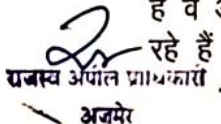 है व
रहे हैं
राजस्व अपील प्राधिकारी
अजमेर